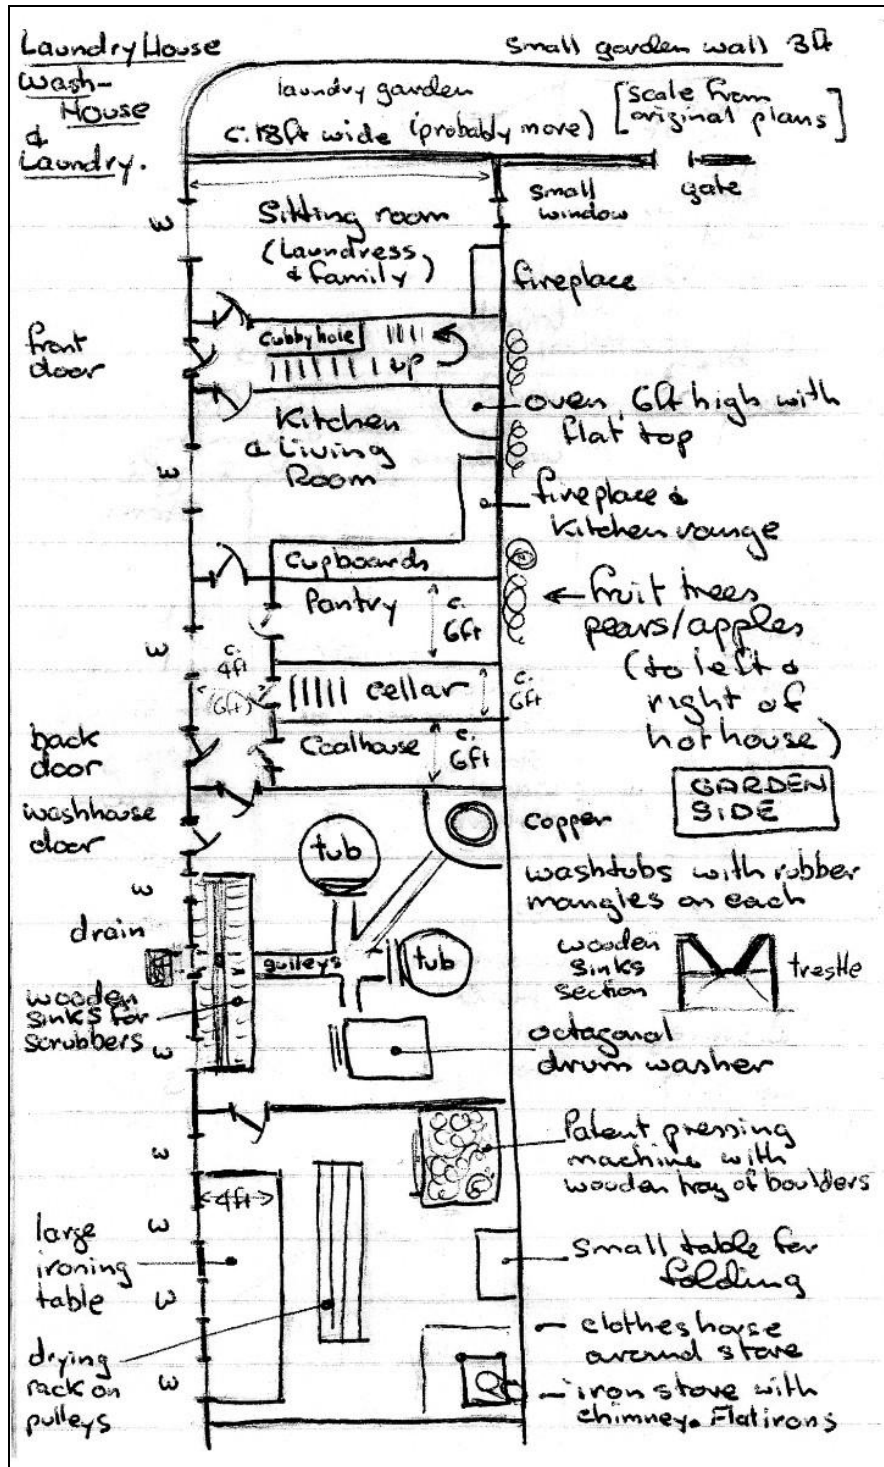 Laundry House
Wash-
House
&
Laundry.
small garden wall 3ft
laundry garden
c.18ft wide (probably more)
[scale from
original plans]
small
window
gate
w
Sitting room
(Laundress
& family)
fireplace
front
door
Cubbyhole
up
oven, 6ft high with
flat top
Kitchen
& Living
Room
w
fireplace &
Kitchen range
Cupboards
Pantry
c.
6ft
fruit trees
pears/apples
(to left &
right of
hothouse)
w
c.
4ft
(6ft)
cellar
c.
6ft
back
door
Coalhouse
c.
6ft
GARDEN
SIDE
washhouse
door
copper
tub
washtubs with rubber
mangles on each
w
drain
gulleys
tub
wooden
sinks
section
trestle
wooden
sinks for
scrubbers
w
octagonal
drum washer
w
Patent pressing
machine with
wooden tray of boulders
4ft
w
large
ironing
table
small table for
folding
w
drying
rack on
pulleys
w
clothes horse
around stove
iron stove with
chimney. Flatirons